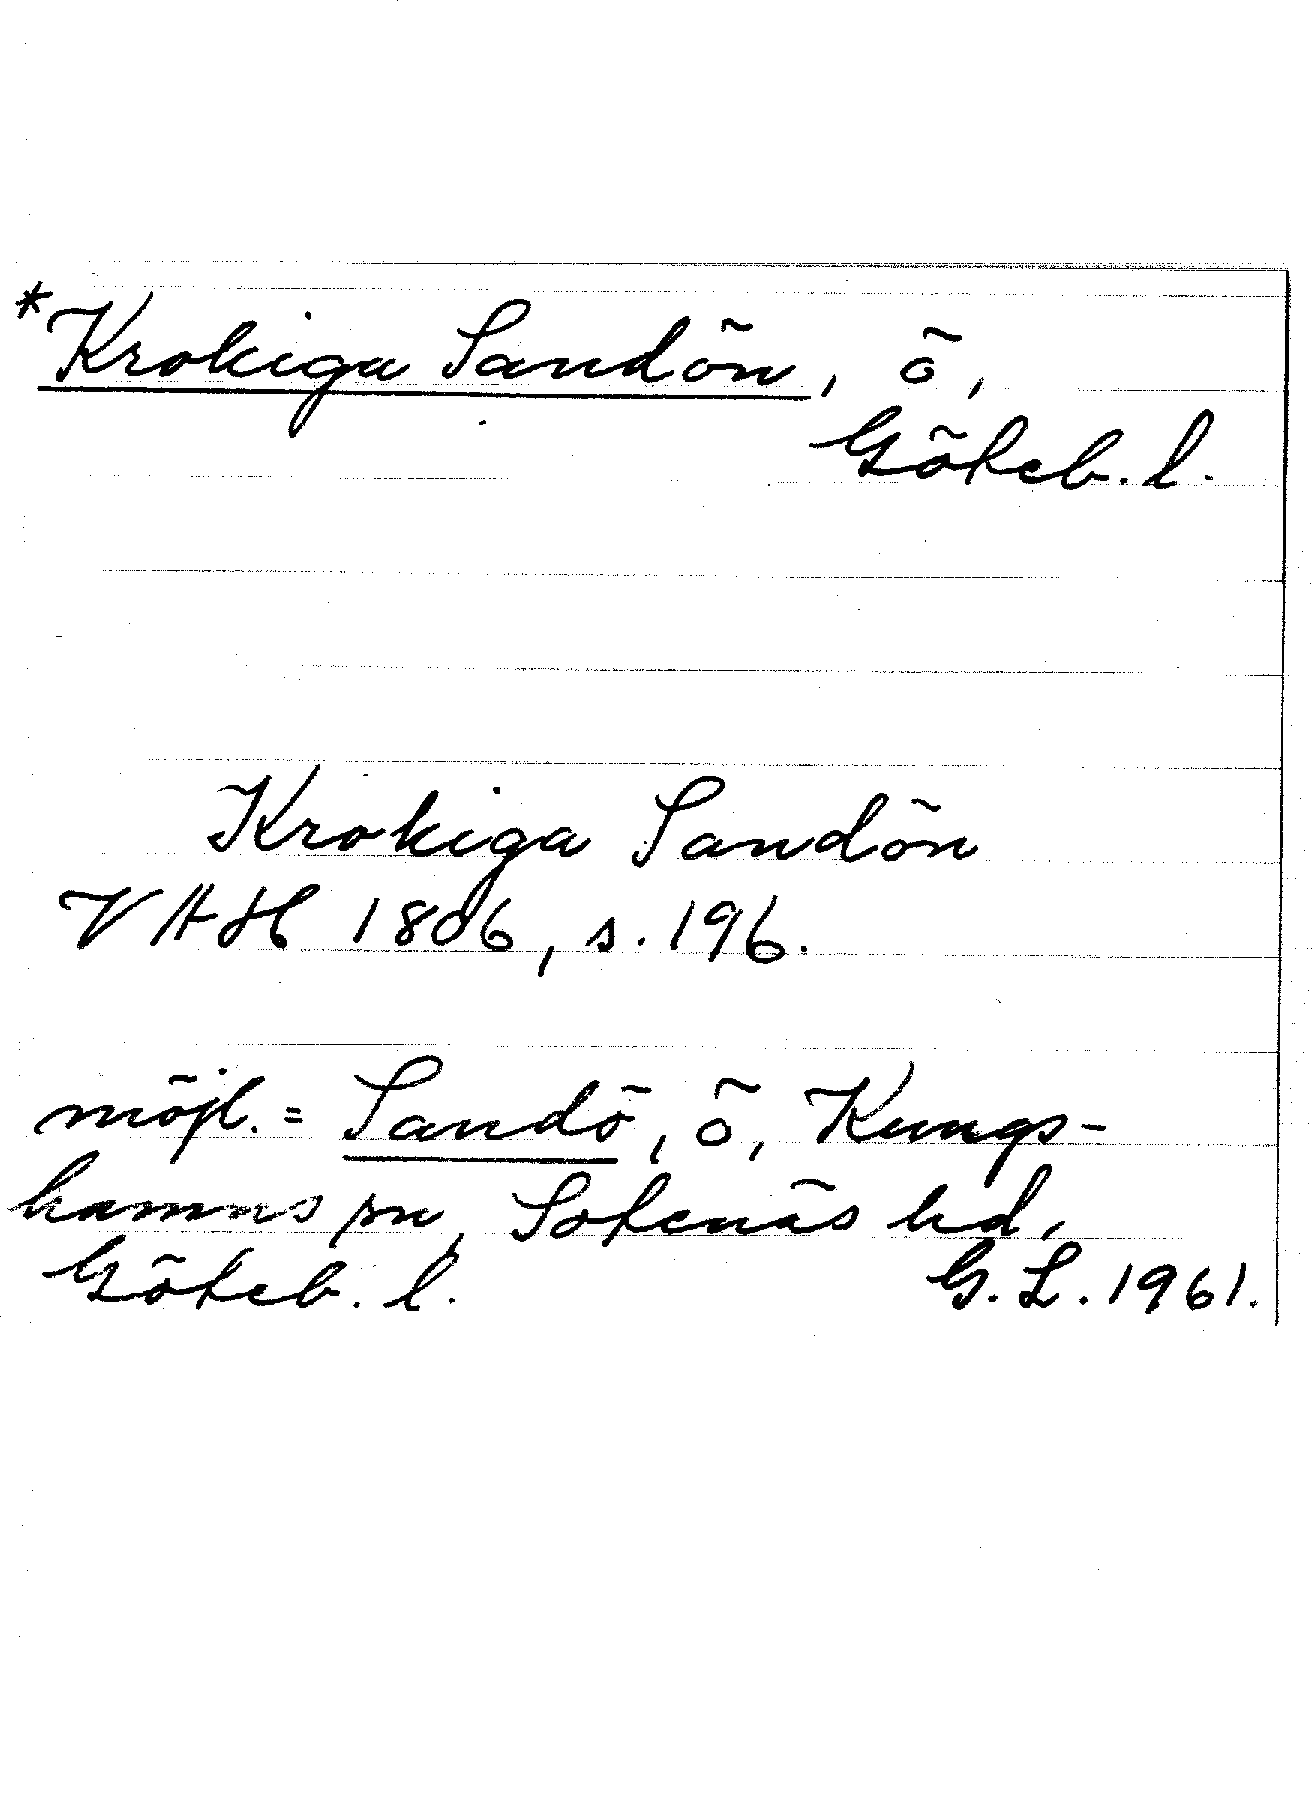 *Krokiga Sandön, ö,
Göteb. l.
Krokiga Sandön
VAH 1806, s. 196.
möjl. = Sandö, ö, Kungs-
hamns sn, Sotenäs hd,
Göteb. l. G. L. 1961.